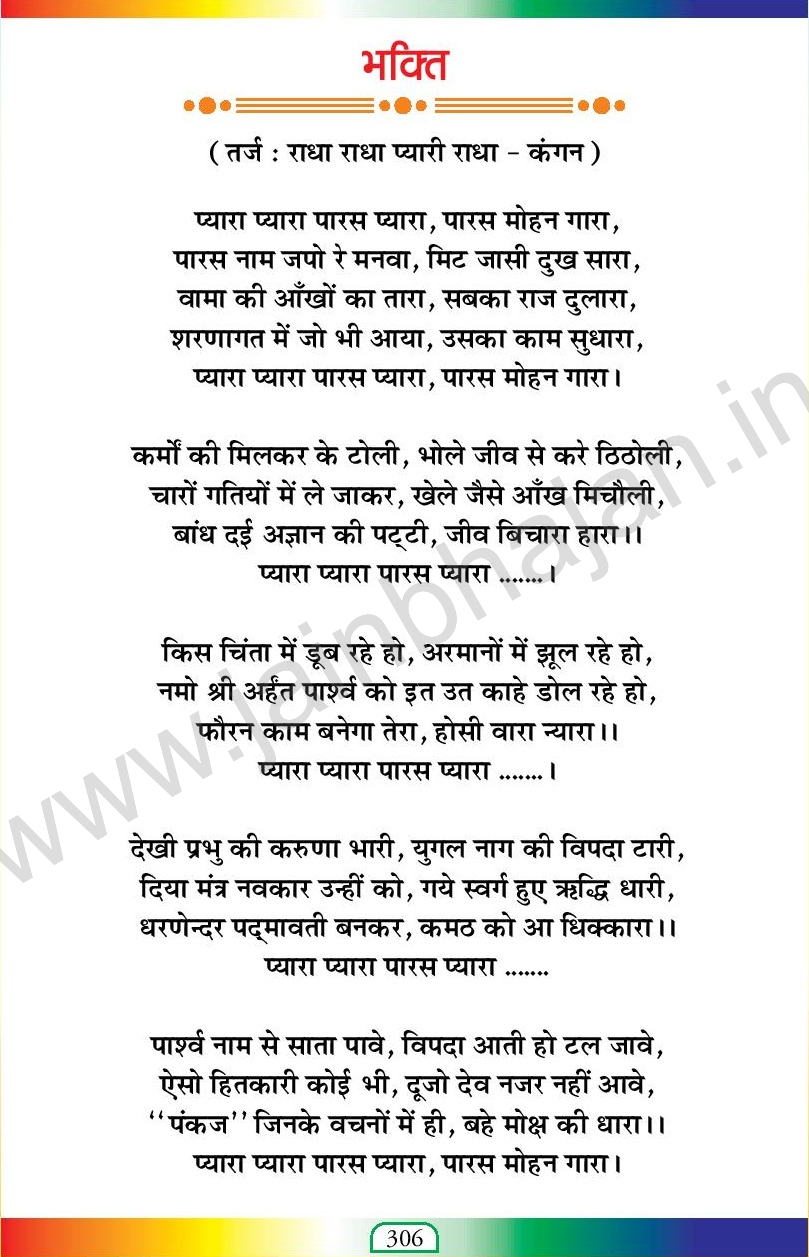 भक्ति
( तर्ज : राधा राधा प्यारी राधा - कंगन )
प्यारा प्यारा पारस प्यारा, पारस मोहन गारा,
पारस नाम जपो रे मनवा, मिट जासी दुख सारा,
वामा की आँखों का तारा, सबका राज दुलारा,
शरणागत में जो भी आया, उसका काम सुधारा,
प्यारा प्यारा पारस प्यारा, पारस मोहन गारा।
कर्मों की मिलकर के टोली, भोले जीव से करे ठिठोली,
चारों गतियों में ले जाकर, खेले जैसे आँख मिचौली,
बांध दई अज्ञान की पट्टी, जीव बिचारा हारा।।
प्यारा प्यारा पारस प्यारा .......।
किस चिंता में डूब रहे हो, अरमानों में झूल रहे हो,
नमो श्री अर्हंत पार्श्व को इत उत काहे डोल रहे हो,
फौरन काम बनेगा तेरा, होसी वारा न्यारा।।
प्यारा प्यारा पारस प्यारा .......।
देखी प्रभु की करुणा भारी, युगल नाग की विपदा टारी,
दिया मंत्र नवकार उन्हीं को, गये स्वर्ग हुए ऋद्धि धारी,
धरणेन्दर पद्मावती बनकर, कमठ को आ धिक्कारा।।
प्यारा प्यारा पारस प्यारा .......
पार्श्व नाम से साता पावे, विपदा आती हो टल जावे,
ऐसो हितकारी कोई भी, दूजो देव नजर नहीं आवे,
‘‘पंकज’’ जिनके वचनों में ही, बहे मोक्ष की धारा।।
प्यारा प्यारा पारस प्यारा, पारस मोहन गारा।
306
www.jainbhajan.in